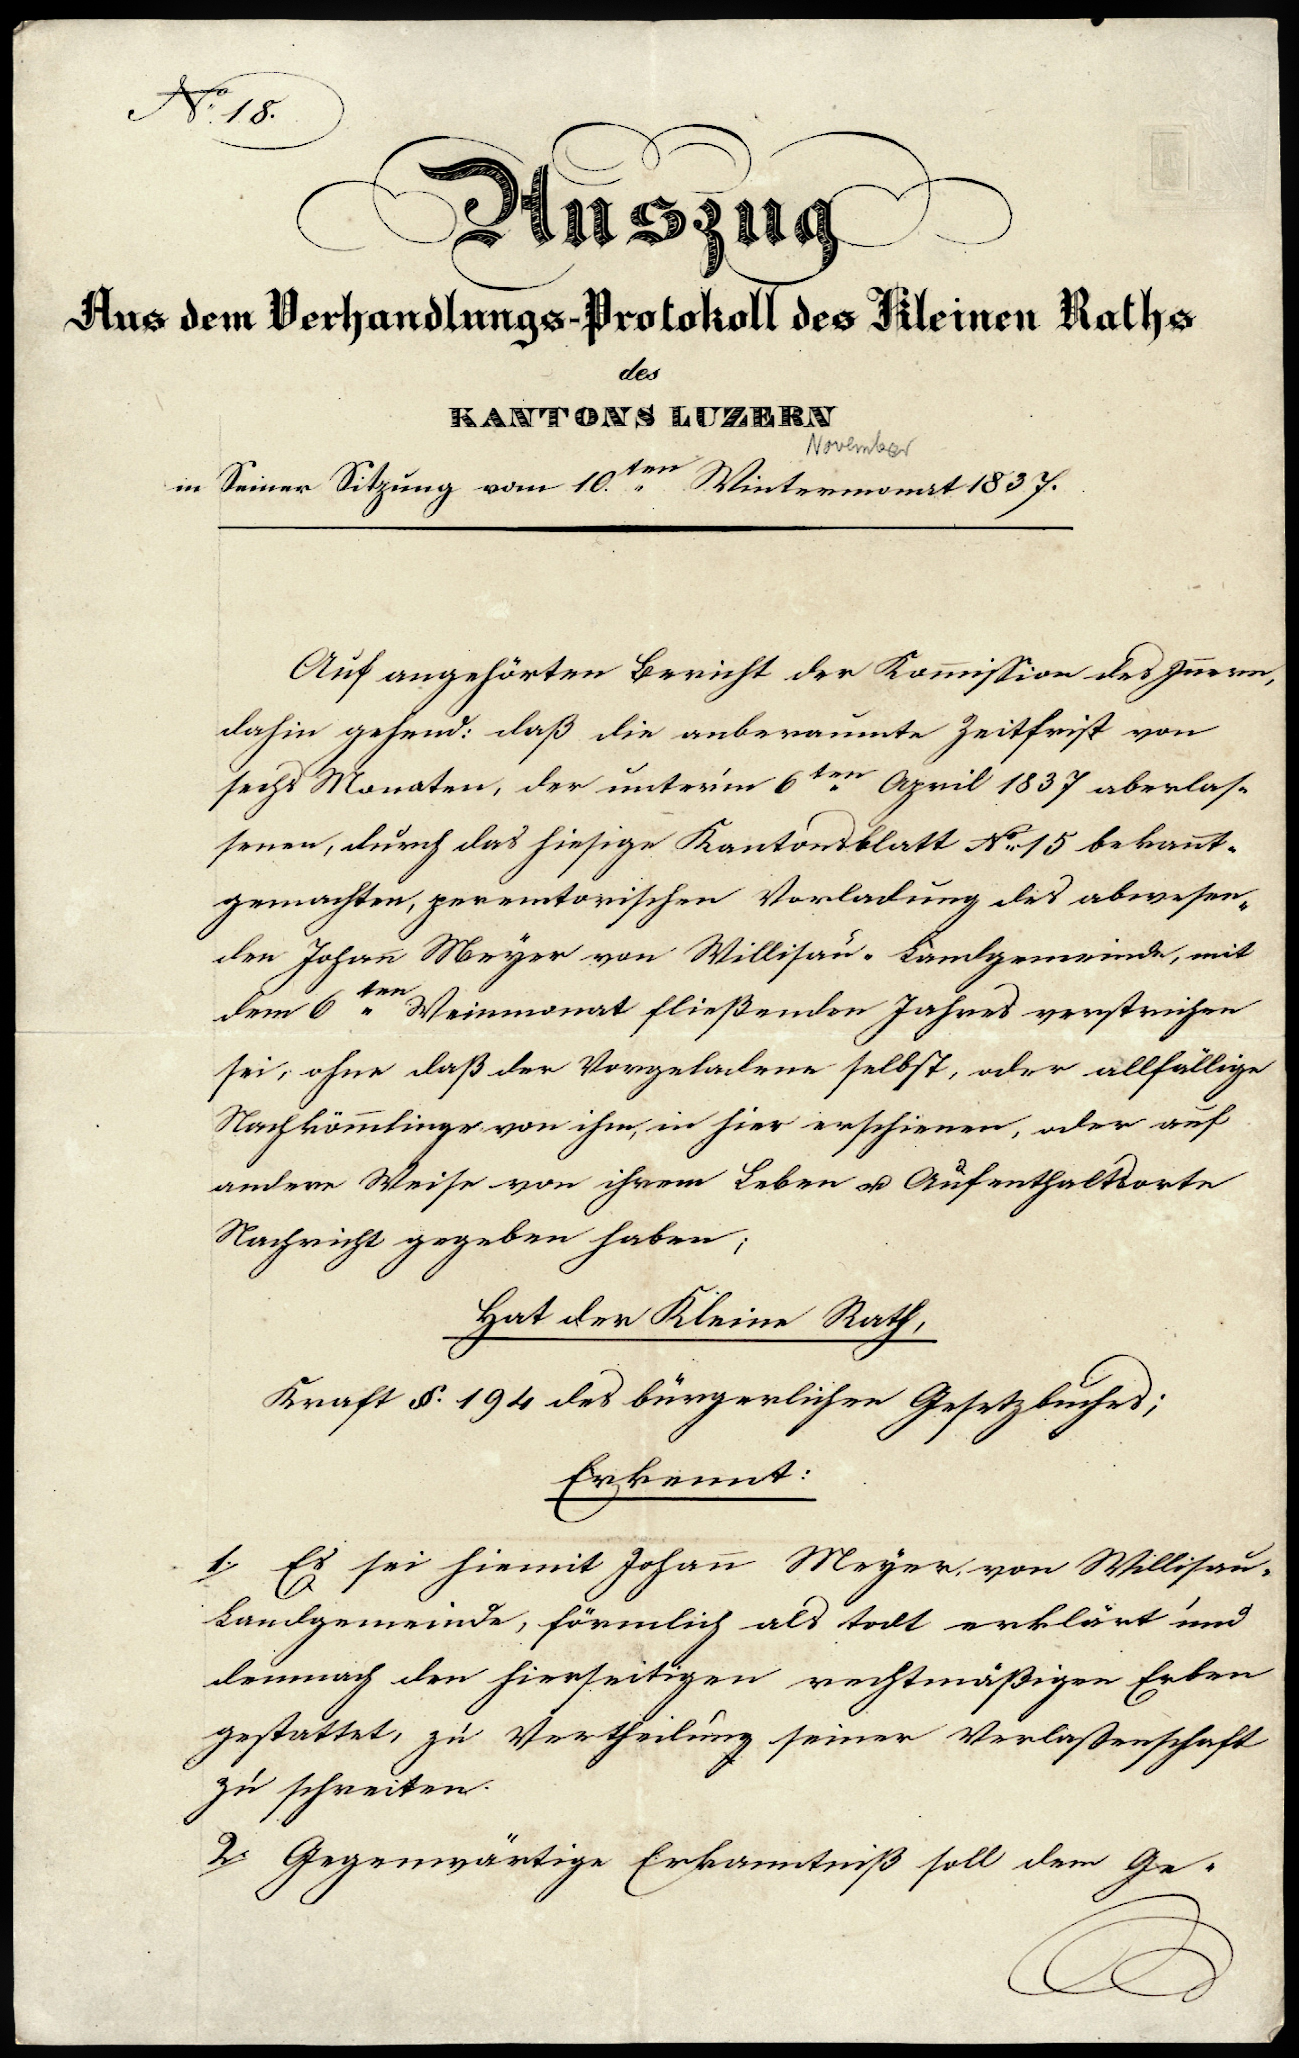 No. 18.
Auszug
Aus dem Verhandlungs-Protokoll des Kleinen Raths
des
KANTONS LUZERN
November
in Seiner Sitzung vom 10.ten Wintermonat 1837.
Auf angehörten Bericht der Kom̄ission des Jn̄ern,
dahin gehend: daß die anberaumte Zeitfrist von
sechs Monaten, der unter'm 6ten April 1837 aberlas-
senen, durch das hiesige Kantonsblatt No. 15 bekan̄t-
gemachten, peremtorischen Vorladung des abwesen-
den Johan̄ Meyer von Willisau-Landgemeinde, mit
dem 6ten Weinmonat fließenden Jahres verstrichen
sei, ohne daß der Vorgeladene selbst, oder allfällige
Nachköm̄linge von ihm, in hier erschienen, oder auf
andere Weise von ihrem Leben u Aufenthaltsorte
Nachricht gegeben haben;
Hat der Kleine Rath,
Kraft §. 194 des bürgerlichen Gesetzbuches;
Erkennt:
1. Es sei hiemit Johan̄ Meyer von Willisau-
Landgemeinde, förmlich als todt erklärt und
demnach den hierseitigen rechtmäßigen Erben
gestattet, zu Vertheilung seiner Verlaßenschaft
zu schreiten.
2. Gegenwärtige Erkanntniß soll dem Ge-